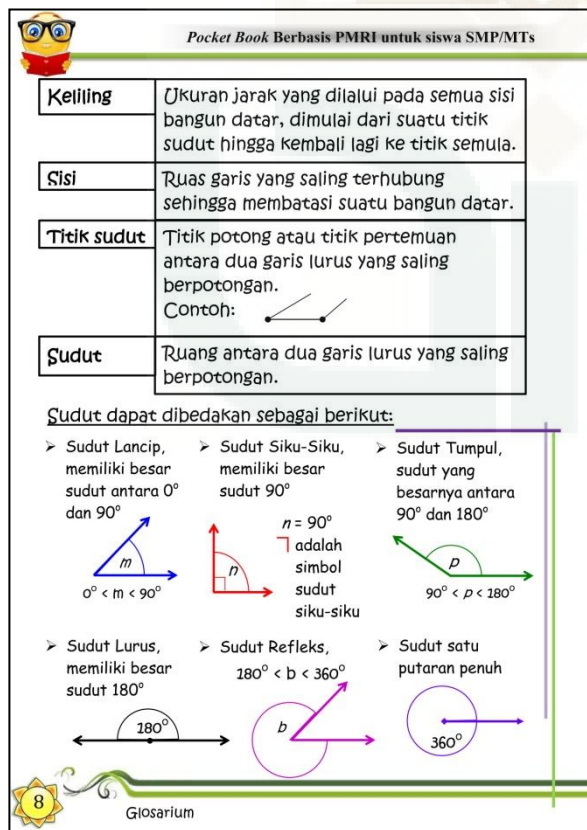 Pocket Book Berbasis PMRI untuk siswa SMP/MTs
Keliling
Ukuran jarak yang dilalui pada semua sisi
bangun datar, dimulai dari suatu titik
sudut hingga kembali lagi ke titik semula.
Sisi
Ruas garis yang saling terhubung
sehingga membatasi suatu bangun datar.
Titik sudut
Titik potong atau titik pertemuan
antara dua garis lurus yang saling
berpotongan.
Contoh:
Sudut
Ruang antara dua garis lurus yang saling
berpotongan.
Sudut dapat dibedakan sebagai berikut:
➢ Sudut Lancip,
memiliki besar
sudut antara 0°
dan 90°
m
0° < m < 90°
➢ Sudut Siku-Siku,
memiliki besar
sudut 90°
n
n = 90°
adalah
simbol
sudut
siku-siku
➢ Sudut Tumpul,
sudut yang
besarnya antara
90° dan 180°
p
90° < p < 180°
➢ Sudut Lurus,
memiliki besar
sudut 180°
180°
➢ Sudut Refleks,
180° < b < 360°
b
➢ Sudut satu
putaran penuh
360°
8
Glosarium